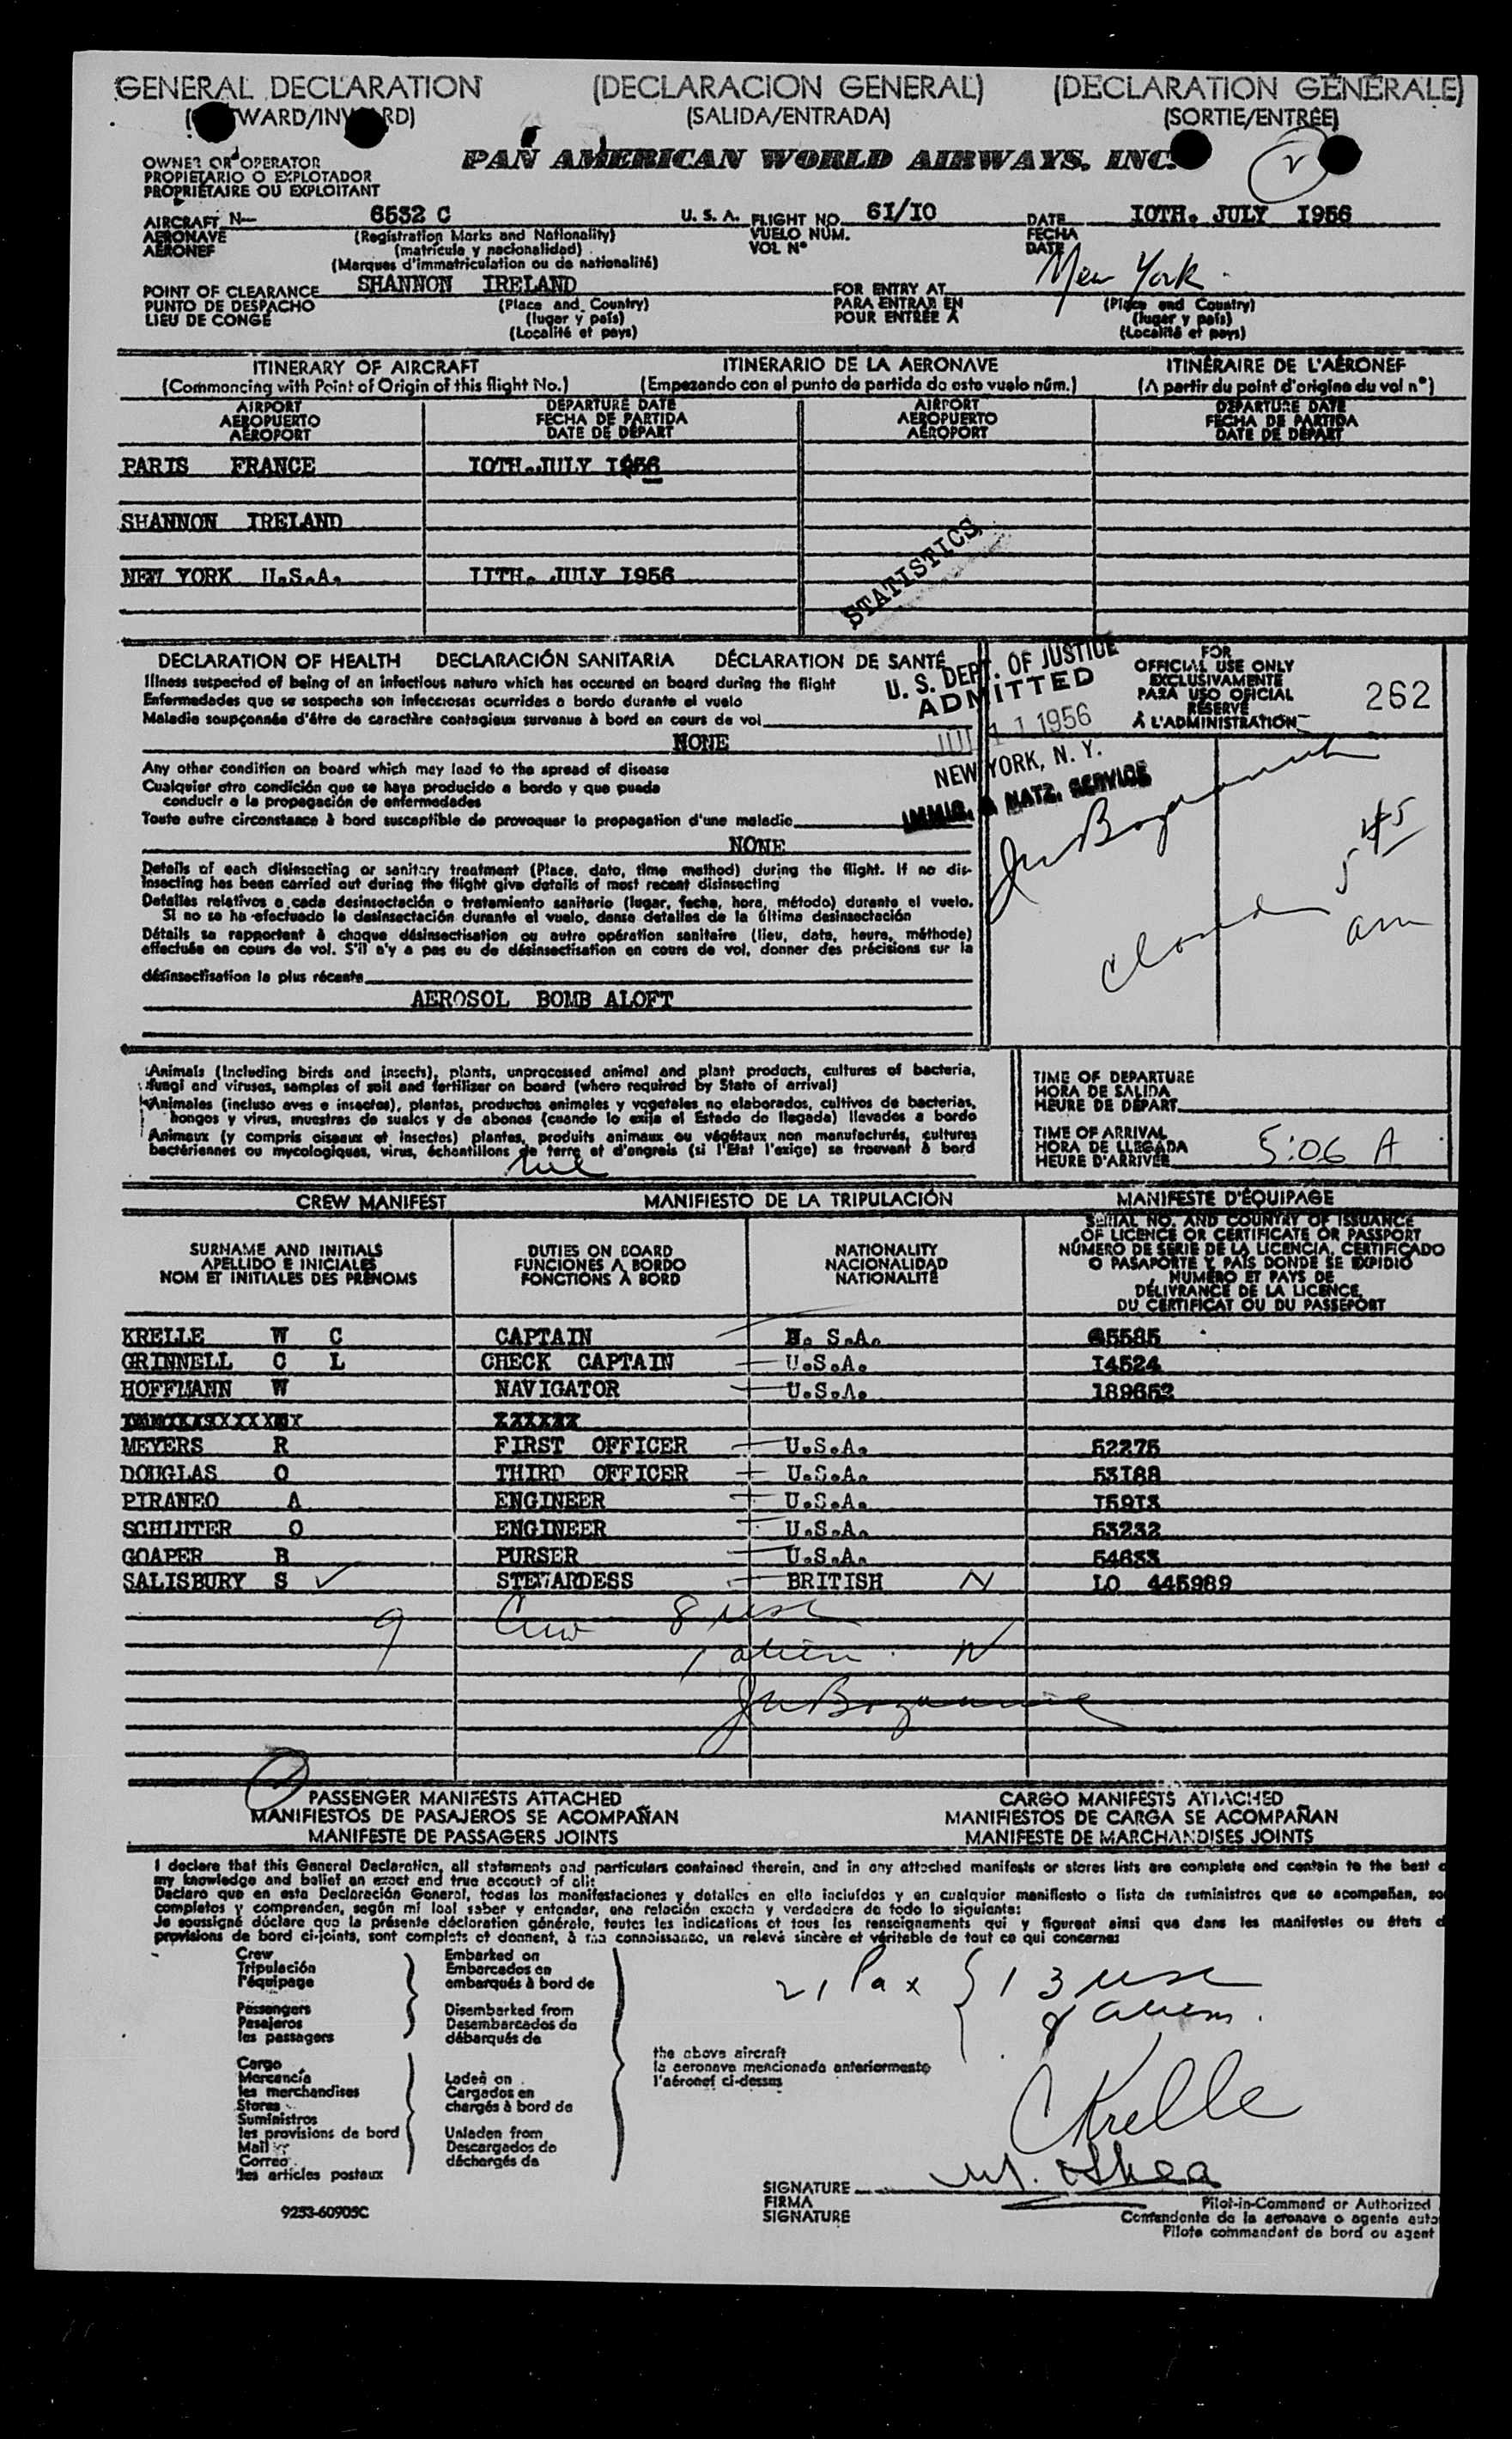 GENERAL DECLARATION (DECLARACION GENERAL) (DECLARATION GÉNÉRALE)
(SALIDA/ENTRADA) (SORTIE/ENTRÉE)
PAN AMERICAN WORLD AIRWAYS, INC.
2
OWNER OR OPERATOR
PROPIETARIO O EXPLOTADOR
PROPRIÉTAIRE OU EXPLOITANT
AIRCRAFT N— 6532 C U. S. A. FLIGHT NO. 61/I0 DATE I0TH. JULY I956
AERONAVE (Registration Marks and Nationality) VUELO NÚM. FECHA
AÉRONEF (matrícula y nacionalidad) VOL N° DATE
(Marques d'immatriculation ou de nationalité)
POINT OF CLEARANCE SHANNON IRELAND FOR ENTRY AT New York.
PUNTO DE DESPACHO (Place and Country) PARA ENTRAR EN (Place and Country)
LIEU DE CONGÉ (lugar y país) POUR ENTRÉE À (lugar y país)
(Localité et pays) (Localité et pays)
ITINERARY OF AIRCRAFT ITINERARIO DE LA AERONAVE ITINÉRAIRE DE L'AÉRONEF
(Commencing with Point of Origin of this flight No.) (Empezando con el punto de partida de este vuelo núm.) (A partir du point d'origine du vol n°)
AIRPORT DEPARTURE DATE AIRPORT DEPARTURE DATE
AEROPUERTO FECHA DE PARTIDA AEROPUERTO FECHA DE PARTIDA
AÉROPORT DATE DE DÉPART AÉROPORT DATE DE DÉPART
PARIS FRANCE I0TH.JULY I956
SHANNON IRELAND
NEW YORK U.S.A. IITH. JULY I956
STATISTICS
DECLARATION OF HEALTH DECLARACIÓN SANITARIA DÉCLARATION DE SANTÉ
Illness suspected of being of an infectious nature which has occured on board during the flight
Enfermedades que se sospecha son infecciosas ocurridas a bordo durante el vuelo
Maladie soupçonnée d'être de caractère contagieux survenue à bord en cours de vol
NONE
U. S. DEPT. OF JUSTICE
ADMITTED
JUL 11 1956
NEW YORK, N. Y.
IMMIG. & NATZ. SERVICE
FOR
OFFICIAL USE ONLY
EXCLUSIVAMENTE
PARA USO OFICIAL
RÉSERVÉ
À L'ADMINISTRATION
262
Any other condition on board which may lead to the spread of disease
Cualquier otra condición que se haya producido a bordo y que pueda
conducir a la propagación de enfermedades
Toute autre circonstance à bord susceptible de provoquer la propagation d'une maladie
NONE
Details of each disinsecting or sanitary treatment (Place, date, time method) during the flight. If no dis-
insecting has been carried out during the flight give details of most recent disinsecting
Detalles relativos a cada desinsectación o tratamiento sanitario (lugar, fecha, hora, método) durante el vuelo.
Si no se ha efectuado la desinsectación durante el vuelo, dense detalles de la última desinsectación
Détails se rapportant à chaque désinsectisation ou autre opération sanitaire (lieu, date, heure, méthode)
effectuée en cours de vol. S'il n'y a pas eu de désinsectisation en cours de vol, donner des précisions sur la
désinsectisation la plus récente
AEROSOL BOMB ALOFT
5 45
am
Animals (Including birds and insects), plants, unprocessed animal and plant products, cultures of bacteria,
fungi and viruses, samples of soil and fertilizer on board (where required by State of arrival)
Animales (incluso aves e insectos), plantas, productos animales y vegetales no elaborados, cultivos de bacterias,
hongos y virus, muestras de suelos y de abonos (cuando lo exija el Estado de llegada) llevados a bordo
Animaux (y compris oiseaux et insectes) plantes, produits animaux ou végétaux non manufacturés, cultures
bactériennes ou mycologiques, virus, échantillons de terre et d'engrais (si l'État l'exige) se trouvant à bord
nil
TIME OF DEPARTURE
HORA DE SALIDA
HEURE DE DÉPART
TIME OF ARRIVAL
HORA DE LLEGADA
HEURE D'ARRIVÉE 5:06 A
CREW MANIFEST MANIFIESTO DE LA TRIPULACIÓN MANIFESTE D'ÉQUIPAGE
SURNAME AND INITIALS DUTIES ON BOARD NATIONALITY SERIAL NO. AND COUNTRY OF ISSUANCE
APELLIDO E INICIALES FUNCIONES A BORDO NACIONALIDAD OF LICENCE OR CERTIFICATE OR PASSPORT
NOM ET INITIALES DES PRÉNOMS FONCTIONS À BORD NATIONALITÉ NÚMERO DE SERIE DE LA LICENCIA, CERTIFICADO
O PASAPORTE Y PAÍS DONDE SE EXPIDIÓ
NUMÉRO ET PAYS DE
DÉLIVRANCE DE LA LICENCE,
DU CERTIFICAT OU DU PASSEPORT
KRELLE W C CAPTAIN U. S.A. 65585
GRINNELL C L CHECK CAPTAIN U.S.A. I4524
HOFFMANN W NAVIGATOR U.S.A. 189652
XXXXXX
MEYERS R FIRST OFFICER U.S.A. 52275
DOUGLAS O THIRD OFFICER U.S.A. 53I88
PIRANEO A ENGINEER U.S.A. I59I3
SCHLUTER O ENGINEER U.S.A. 53232
GOAPER B PURSER U.S.A. 54633
SALISBURY S ✓ STEWARDESS BRITISH N LO 445989
9 Crew 8 usc
1 alien. N
PASSENGER MANIFESTS ATTACHED CARGO MANIFESTS ATTACHED
MANIFIESTOS DE PASAJEROS SE ACOMPAÑAN MANIFIESTOS DE CARGA SE ACOMPAÑAN
MANIFESTE DE PASSAGERS JOINTS MANIFESTE DE MARCHANDISES JOINTS
I declare that this General Declaration, all statements and particulars contained therein, and in any attached manifests or stores lists are complete and contain to the best
my knowledge and belief an exact and true account of all:
Declaro que en esta Declaración General, todas las manifestaciones y detalles en ella incluídos y en cualquier manifiesto o lista de suministros que se acompañan, so
completos y comprenden, según mi leal saber y entender, una relación exacta y verdadera de todo lo siguiente:
Je soussigné déclare que la présente déclaration générale, toutes les indications et tous les renseignements qui y figurent ainsi que dans les manifestes ou états d
provisions de bord ci-joints, sont complets et donnent, à ma connaissance, un relevé sincère et véritable de tout ce qui concerne:
Crew Embarked on
Tripulación Embarcados en
l'équipage embarqués à bord de
Passengers Disembarked from
Pasajeros Desembarcados de
les passagers débarqués de
21 Pax { 13 usc
8 aliens.
the above aircraft
la aeronave mencionada anteriormente
l'aéronef ci-dessus
Cargo
Mercancía Laden on
les marchandises Cargados en
Stores chargés à bord de
Suministros
les provisions de bord Unladen from
Mail Descargados de
Correo déchargés de
les articles postaux
CKrelle
SIGNATURE
FIRMA
SIGNATURE
Pilot-in-Command or Authorized
Comandante de la aeronave o agente auto
Pilote commandant de bord ou agent
9253-60905C